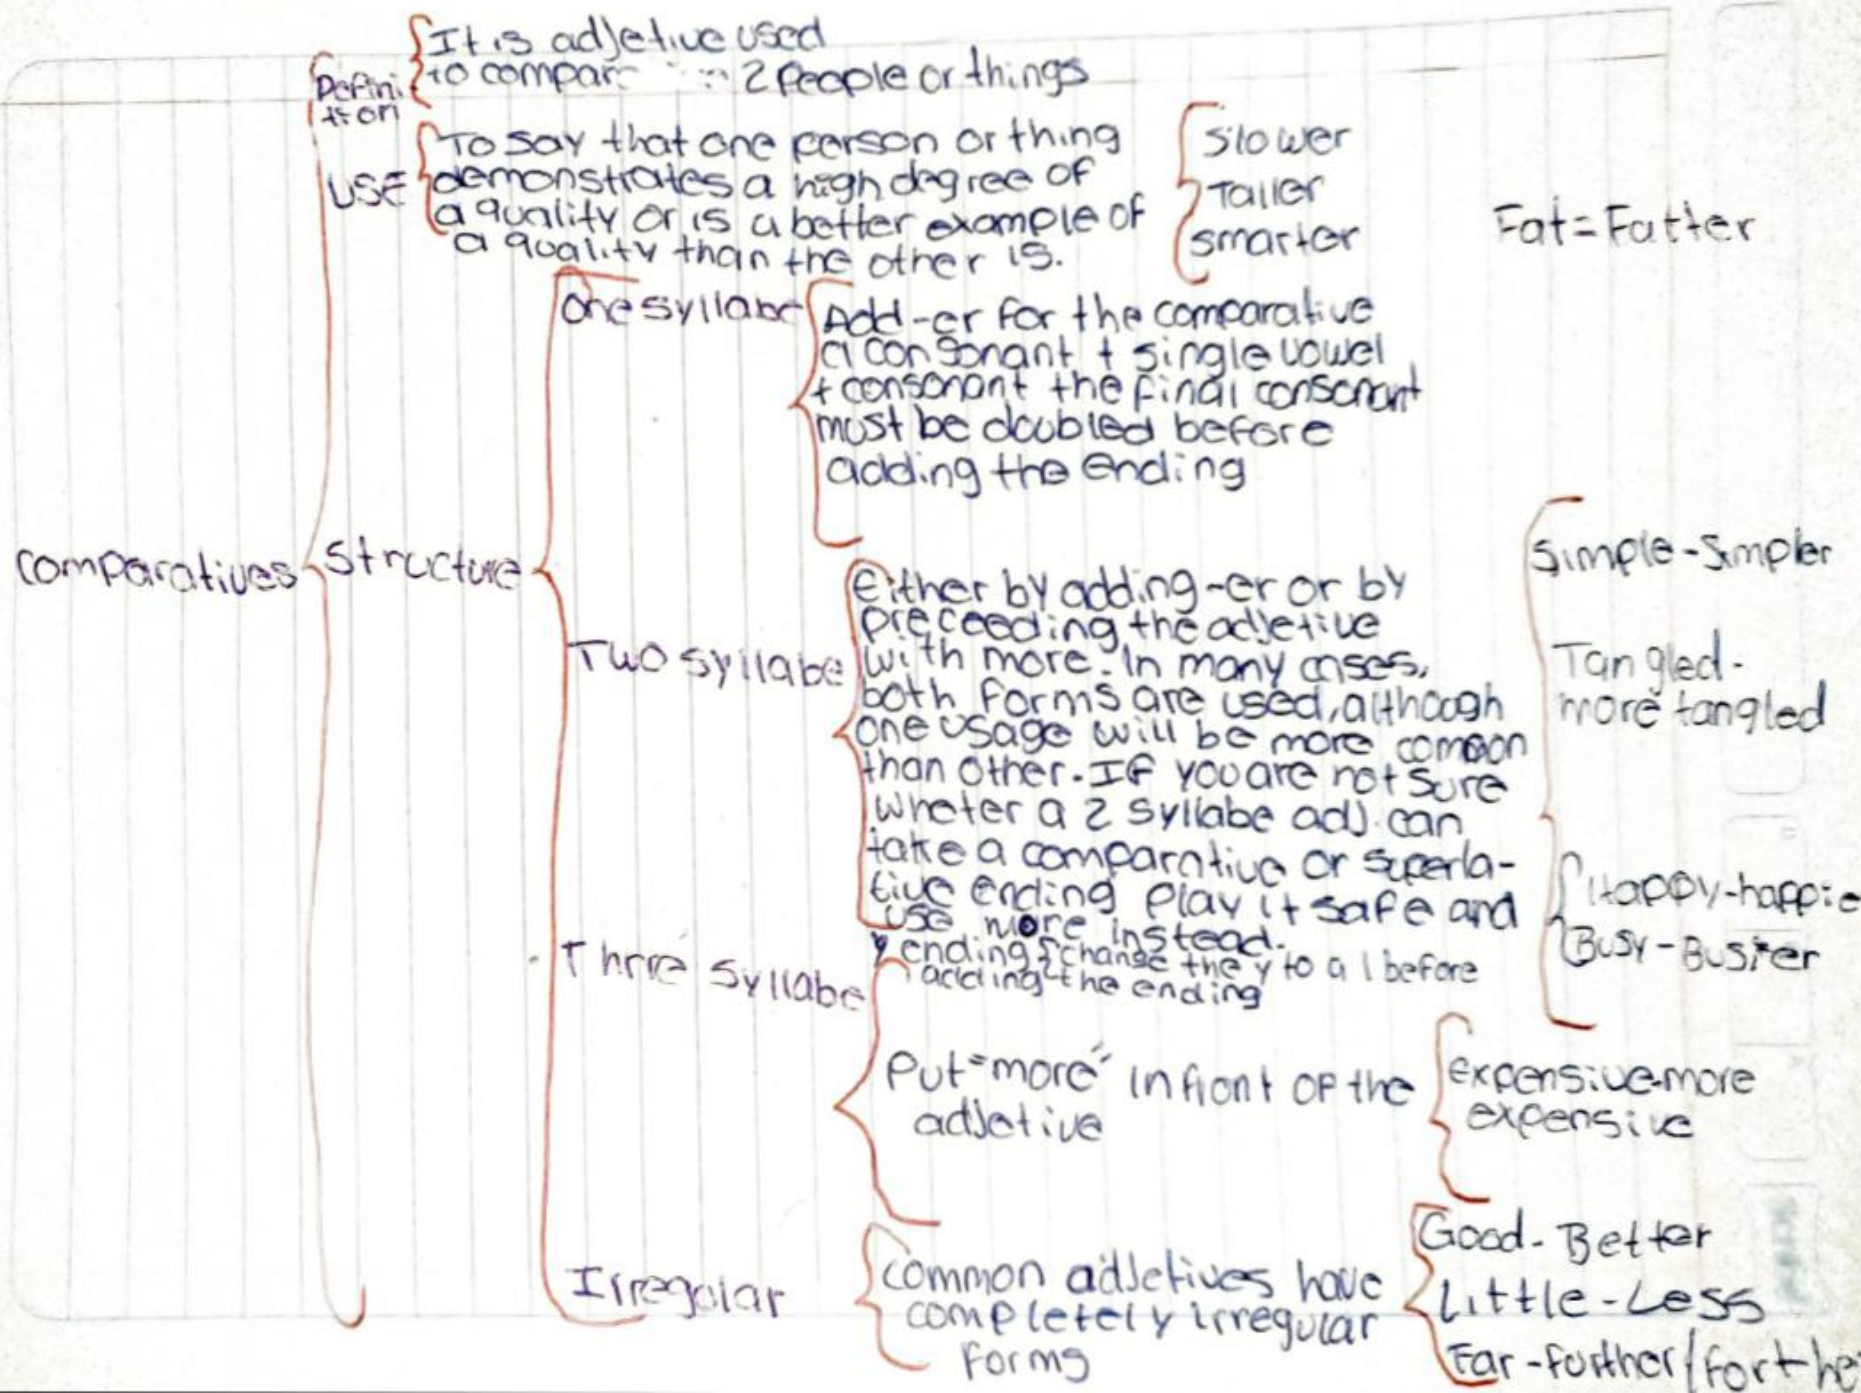 It is adjetive used
to compar 2 people or things
Defini
tion
USE
To say that one person or thing
demonstrates a high degree of
a quality or is a better example of
a quality than the other is.
Slower
Taller
smarter
Fat=Fatter
One syllabe
Add -er for the comparative
a consonant + single vowel
+ consonant the final consonant
must be doubled before
adding the ending
comparatives
Structure
Two syllabe
Either by adding -er or by
preceeding the adjetive
with more. In many cases,
both forms are used, although
one usage will be more common
than other. If you are not sure
wheter a 2 syllabe adj. can
take a comparative or superla-
tive ending play it safe and
use more instead.
y ending change the y to a i before
adding the ending
Simple - Simpler
Tangled -
more tangled
Happy - happie
Busy - Busier
Three syllabe
Put "more" in front of the
adjetive
Expensive-more
expensive
Irregular
common adjetives have
completely irregular
forms
Good - Better
Little - Less
Far - further / farthe